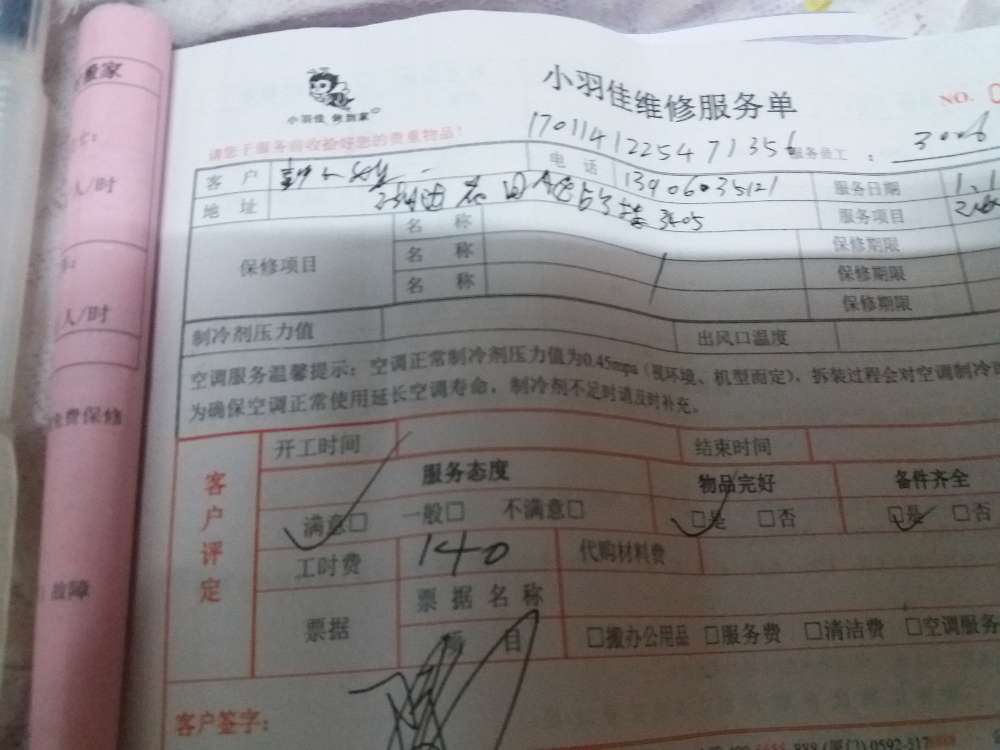 搬家
人/时
人/时
免费保修
故障
小羽佳 到家
小羽佳维修服务单
NO. 0
请您于服务前收捡好您的贵重物品!
17011412254 71356
服务员工: 3006
客 户
电 话 13906035121
服务日期 1.1
地 址 花园 3405
服务项目
保修项目
名 称
保修期限
名 称
保修期限
名 称
保修期限
制冷剂压力值
出风口温度
空调服务温馨提示:空调正常制冷剂压力值为0.45mpa(视环境、机型而定),拆装过程会对空调制冷
为确保空调正常使用延长空调寿命,制冷剂不足时请及时补充。
客户评定
开工时间
结束时间
服务态度
物品完好
备件齐全
满意□ 一般□ 不满意□
□是 □否
□是 □否
工时费 140
代购材料费
票据
票 据 名 称
项 目
□搬办公用品 □服务费 □清洁费 □空调服务
客户签字: